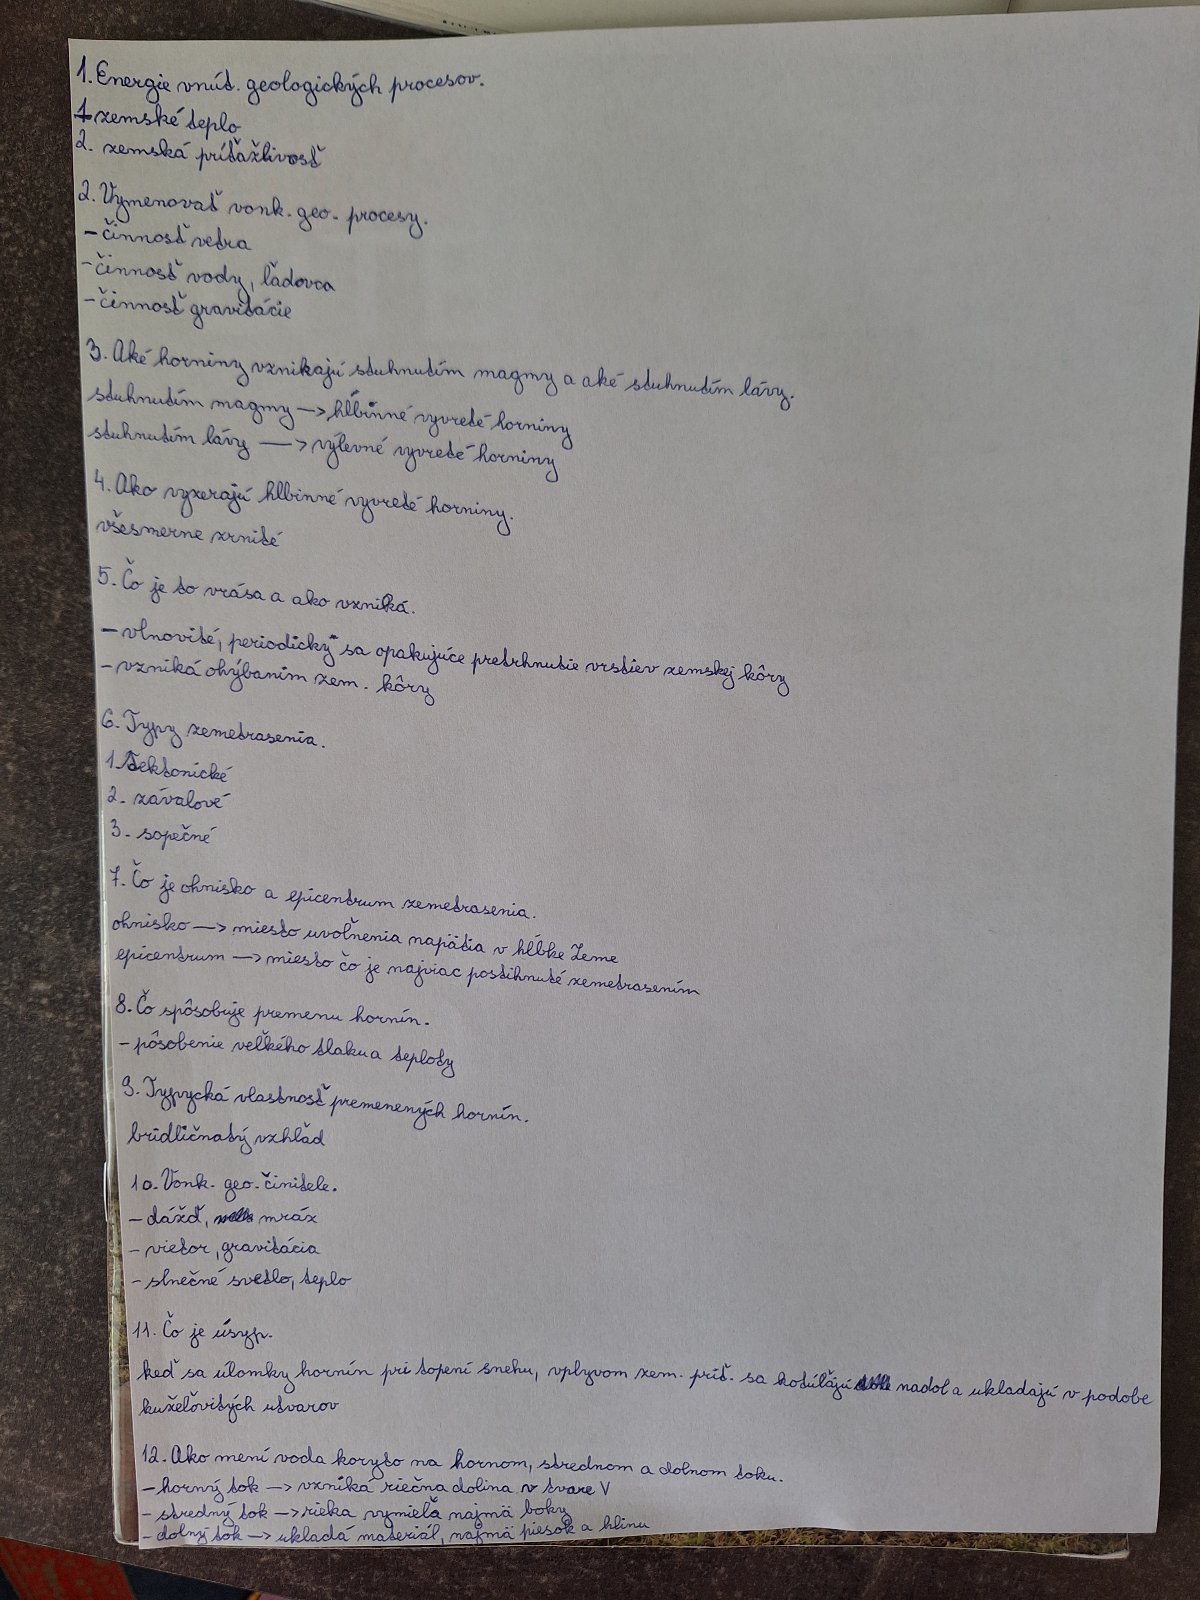 1. Energie vnút. geologických procesov.
1 zemské teplo
2. zemská príťažlivosť
2. Vymenovať vonk. geo. procesy.
- činnosť vetra
- činnosť vody, ľadovca
- činnosť gravitácie
3. Aké horniny vznikajú stuhnutím magmy a aké stuhnutím lávy.
stuhnutím magmy -> hĺbinné vyvreté horniny
stuhnutím lávy -> výlevné vyvreté horniny
4. Ako vyzerajú hlbinné vyvreté horniny.
všesmerne zrnité
5. Čo je to vrása a ako vzniká.
- vlnovité, periodicky sa opakujúce pretrhnutie vrstiev zemskej kôry
- vzniká ohýbaním zem. kôry
6. Typy zemetrasenia.
1. Tektonické
2. závalové
3. sopečné
7. Čo je ohnisko a epicentrum zemetrasenia.
ohnisko -> miesto uvoľnenia napätia v hĺbke Zeme
epicentrum -> miesto čo je najviac postihnuté zemetrasením
8. Čo spôsobuje premenu hornín.
- pôsobenie veľkého tlaku a teploty
9. Typycká vlastnosť premenených hornín.
bridličnatý vzhľad
10. Vonk. geo. činitele.
- dážď, mráz
- vietor, gravitácia
- slnečné svetlo, teplo
11. Čo je úsyp.
keď sa úlomky hornín pri topení snehu, vplyvom zem. príť. sa kotúľajú nadol a ukladajú v podobe
kužeľovitých útvarov
12. Ako mení voda koryto na hornom, strednom a dolnom toku.
- horný tok -> vzniká riečna dolina v tvare V
- stredný tok -> rieka vymieľa najmä boky
- dolný tok -> ukladá materiál, najmä piesok a hlinu